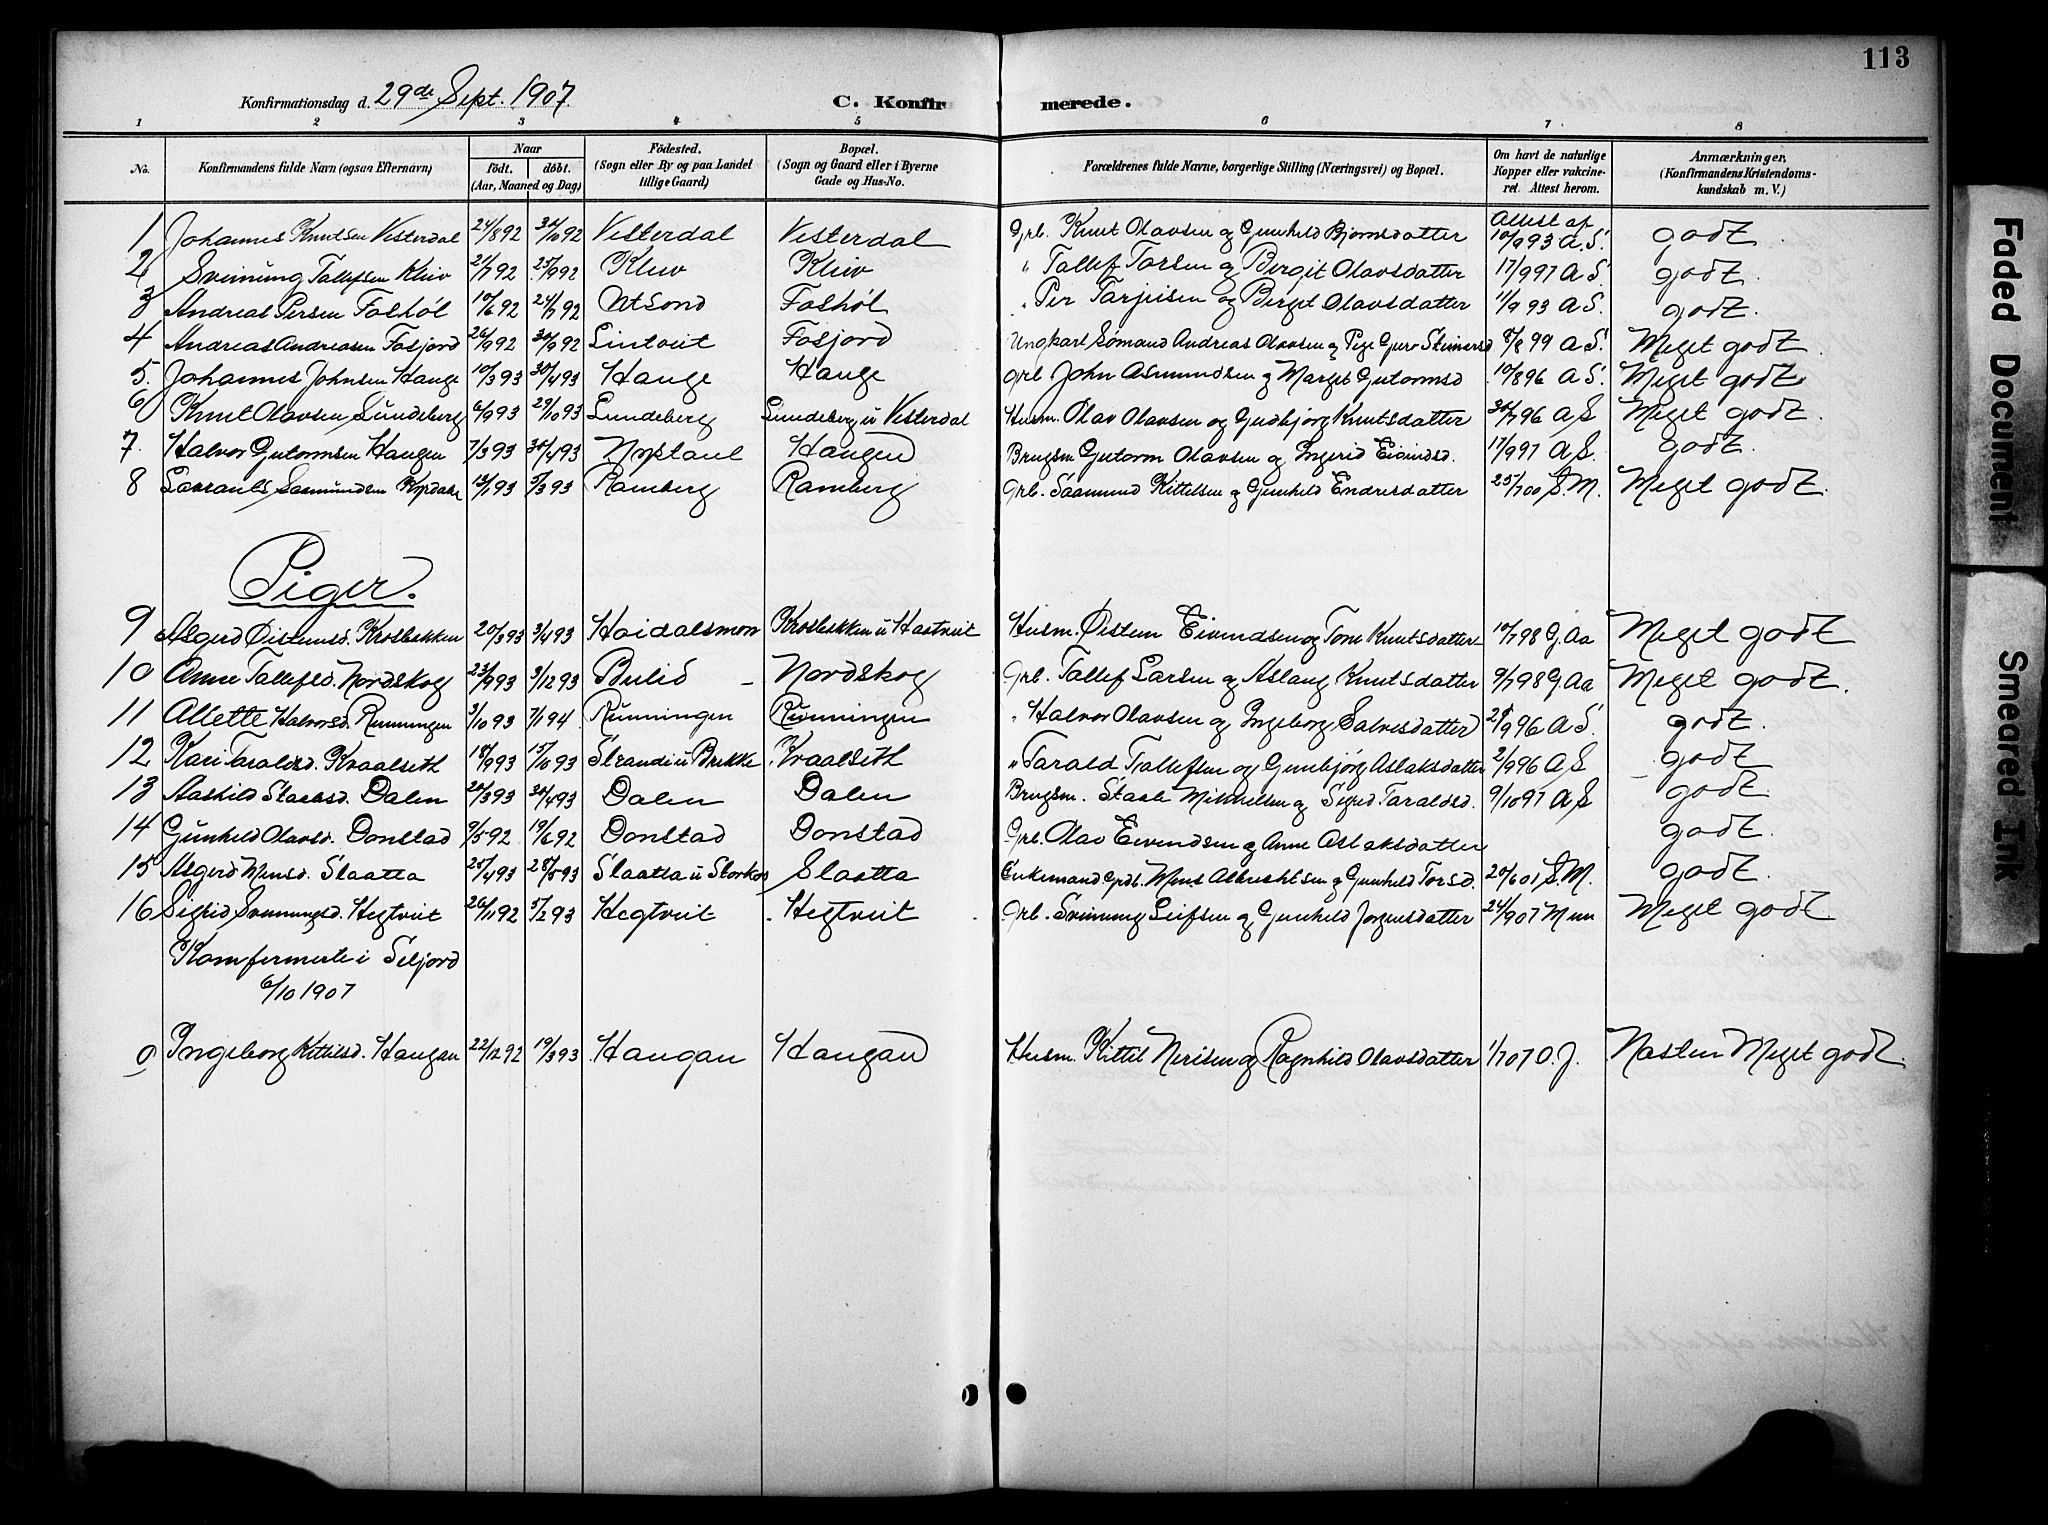 113
Konfirmationsdag d. 29de Sept. 1907. C. Konfirmerede.
1 2 3 4 5 6 7 8
No. Konfirmandens fulde Navn (ogsaa Efternavn) Naar födt. döbt. (Aar, Maaned og Dag) Födested. (Sogn eller By og paa Landet tillige Gaard) Bopæl. (Sogn og Gaard eller i Byerne Gade og Hus-No. Forældrenes fulde Navne, borgerlige Stilling (Næringsvei) og Bopæl. Om havt de naturlige Kopper eller vakcineret. Attest herom. Anmærkninger, (Konfirmandens Kristendomskundskab m. V.)
1 Johannes Knutsen Vesterdal 24/8 92 92 Vesterdal Vesterdal Grb. Knut Olavsen og Gunhild Bjørnsdatter Attest af 10/9 93 A.S. godt.
2 Sveinung Tallefsen Kleiv 21/7 92 25/9 92 Kleiv Kleiv " Tallef Tarsen og Birgit Olavsdatter 17/9 97 A S. godt.
3 Andreas Persen Foshøl 10/6 92 24/7 92 Utsond Foshøl " Per Tarjeisen og Birget Olavsdatter 1/9 93 A S. godt.
4 Andreas Andreasen Fosjord 26/9 92 30/9 92 Lintveit Fosjord Ungkarl Sømand Andreas Olavsen og Pige Gurv Steinersd 8/8 99 A S. Meget godt.
5. Johannes Johnsen Hauge 10/3 93 30/4 93 Hauge Hauge Grb. John Asmundsen og Marget Gutormsd 10/8 96 A S. Meget godt
6 Knut Olavsen Sundeberg 6/9 93 29/10 93 Lundeberg Lundeberg u Vesterdal Husm. Olav Olavsen og Gudbjørg Knutsdatter 30/7 96 A S Meget godt.
7. Halvor Gutormsen Haugen 7/3 93 30/4 93 Nystaul Haugen Brugsm Gutorm Olavsen og Ingerid Eivindsd. 17/9 97 A S. godt.
8 Lavrants Saamundsen 13/1 93 5/3 93 Ramberg Ramberg Grb. Saamund Kittelsen og Gunhild Endresdatter 25/7 00 S.M. Meget godt.
Piger.
9 Asgerd Øistensd. Krosbakken 20/3 93 3/4 93 Haidalsmon Krosbakken u Haatveit Husm. Østein Eivindsen og Tone Knutsdatter 10/7 98 G. Aa Meget godt
10 Anne Tallefsd. Nordskog 23/9 93 3/12 93 Bulid - Nordskog Grb. Tallef Larsen og Aslaug Knutsdatter 9/7 98 G. Aa Meget godt.
11 Allette Halvorsd. Rünningen 3/10 93 7/1 94. Rünningen Rünningen " Halvor Olavsen og Ingeborg Salvesdatter 96 A S. godt.
12 Kari Taraldsd. Kvaalseth 18/9 93 15/10 93 Strandi u Brekke Kvaalseth " Tarald Tjallefsen og Gunbjørg Aslaksdatter 2/9 96 A S godt
13 Aashild Staalesd. Dalen 20/3 93 30/4 93 Dalen Dalen Brugsm. Staale Mikkelsen og Sigrid Taraldsd. 9/10 97 A S godt
14 Gunhild Olavsd. Donstad 9/5 92 19/6 92 Donstad Donstad Grb. Olav Eivindsen og Anne Aslaksdatter godt.
15 Asgerd Mensd. Slaatta 25/4 93 28/5 93 Slaatta u Slaatta Enkemand Grdb. Mens Albrechtsen og Gunhild Torsd. 20/6 01 S.M. godt.
16 Sigrid Sveinungsd. Hegtveit 26/11 92 5/2 93 Hegtveit Hegtveit Grb. Sveinung Leifsen og Gunhild Jørgensdatter 24/9 07 Meget godt
Komfermerte i Seljord
6/10 1907
Ingeborg Kittilsd. Haugan 22/12 92 19/3 93 Haugan Haugan Husm. Kittil Nerisen og Ragnhild Olavsdatter 1/7 07 O. J. Næsten Meget godt.
Faded Document
Smeared Ink